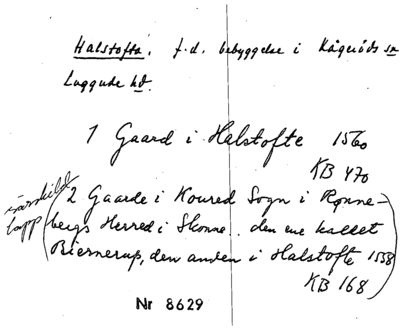 Halstofta. f.d. bebyggelse i Kågeröds sn
Luggude hd.
1 Gaard i Halstofte 1560
KB 470
särskild
lapp
(2 Gaarde i Koured Sogn i Rønne-
bergs Herred i Skonne. den ene kaldet
Biernerup, den anden i Halstofte 1558
KB 168)
Nr 8629